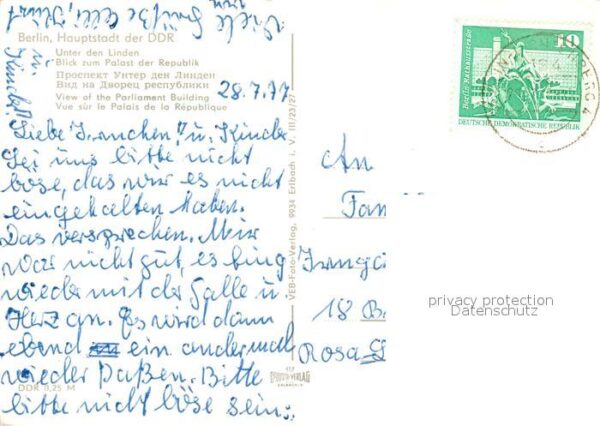 Viele
Grüße
Berlin, Hauptstadt der DDR
Unter den Linden
Blick zum Palast der Republik
Проспект Унтер ден Линден
Вид на Дворец республики
View of the Parliament Building
Vue sûr le Palais de la République
28.7.77
Liebe Irmchen! u. Kinder
Sei uns bitte nicht
böse, das wir es nicht
eingehalten haben.
Das versprechen. Mir
war nicht gut, es ging
wieder mit der Galle u.
Herz an. Es wird dann
ebend ein andermal
wieder paßen. Bitte
bitte nicht böse sein.
DDR 0,25 M
VEB-Foto-Verlag, 9934 Erlbach i. V. III/23/27
An
Fam
Irmga
18 B
Rosa
10
Berlin-Rathausstraße
DEUTSCHE DEMOKRATISCHE REPUBLIK
privacy protection
Datenschutz